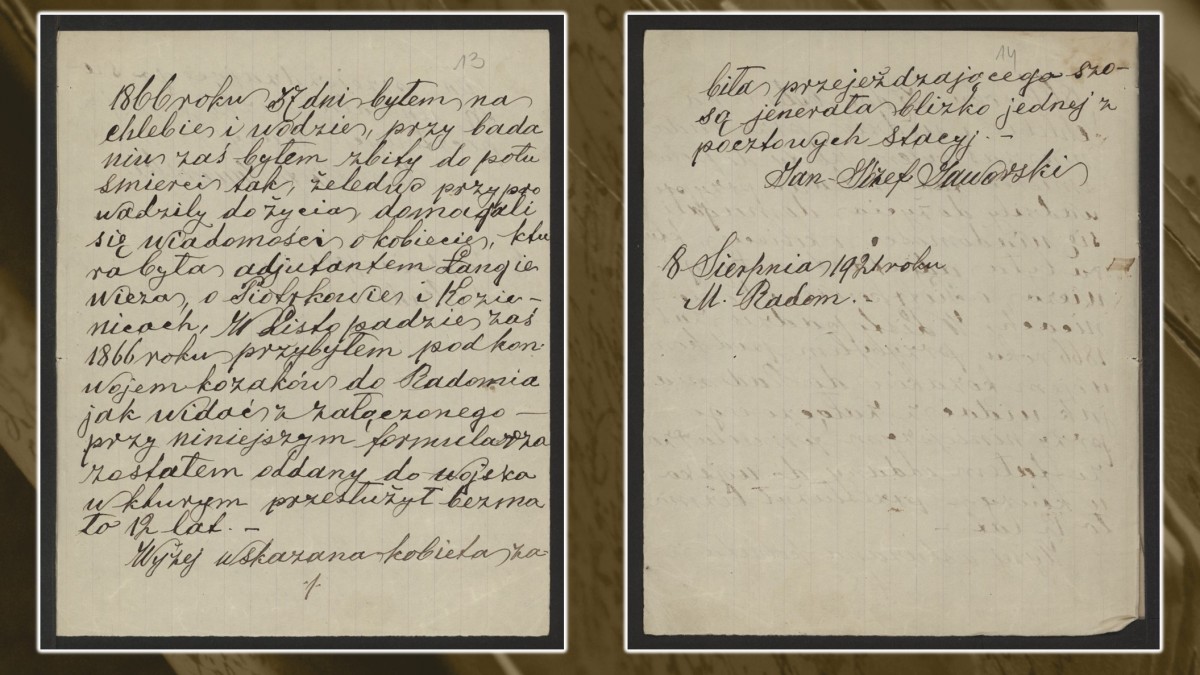 13
1866 roku 37 dni byłem na
chlebie i wodzie, przy bada
niu zaś byłem zbity do połu
śmierci tak, że ledwo przypro
wadzily do życia, domagali
się wiadomości o kobiecie, ktu
ra była adjutantem Langie
wicza, o Piotrkowie i Kozie-
nicach, W Listopadzie zaś
1866 roku przybyłem pod kon-
wojem kozaków do Radomia
jak widać z załączonego —
przy niniejszym formularza
zostałem oddany do wojska
w kturym przesłużył bezma
ło 12 lat. —
Wyżej wskazana kobieta za-
·/·
14
biła przejeżdzającego szo-
są jenerała blizko jednej z
pocztowych stacyj. —
Jan Józef Jaworski
8 Sierpnia 1921 roku
M. Radom.